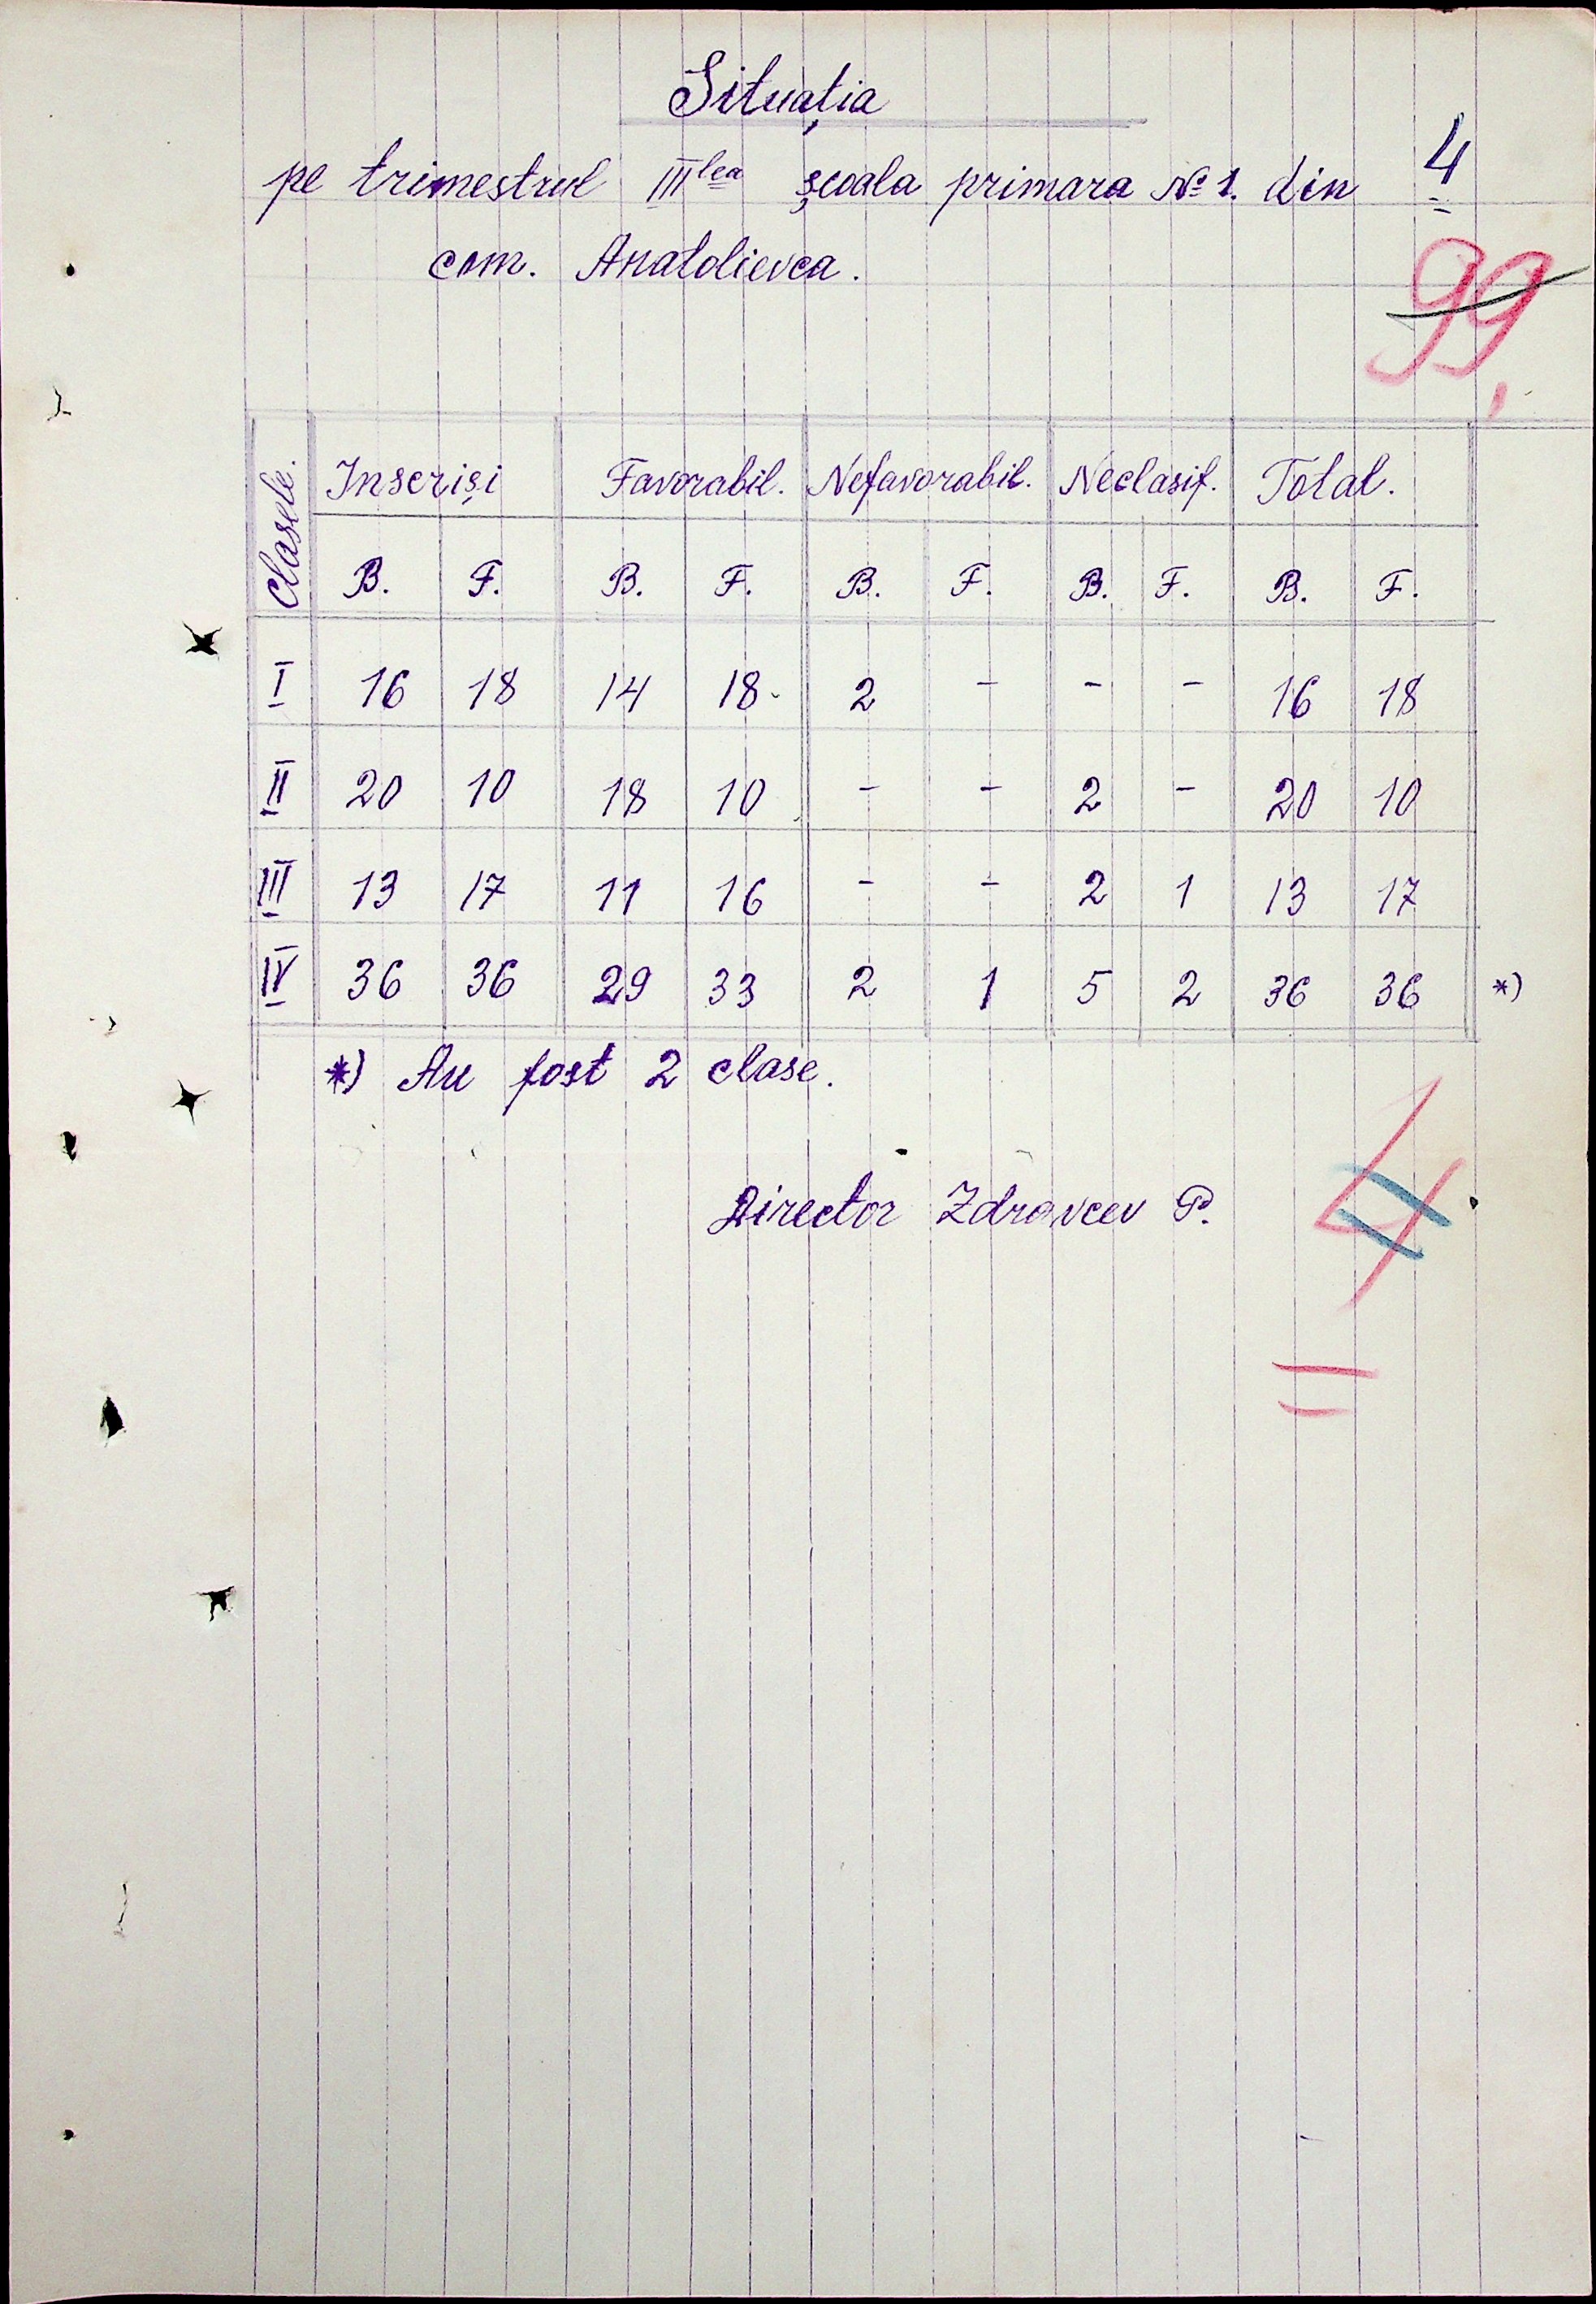 Situația
pe trimestrul III lea școala primara № 1. din
com. Anatolievca.
4
99
Clasele. Inscriși Favorabil. Nefavorabil. Neclasif. Total.
B. F. B. F. B. F. B. F. B. F.
I 16 18 14 18 2 - - - 16 18
II 20 10 18 10 - - 2 - 20 10
III 13 17 11 16 - - 2 1 13 17
IV 36 36 29 33 2 1 5 2 36 36 *)
*) Au fost 2 clase.
Director Zdravcev P.
4